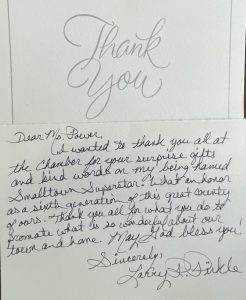 Thank
You
Dear Ms. Power,
I wanted to thank you all at
the Chamber for your surprise gifts
and kind words on my being named
Smalltown Superstar! What an honor
as a sixth generation of this great county
of ours. Thank you all for what you do to
promote what is so wonderful about our
town and home. May God bless you!
Sincerely,
Larry